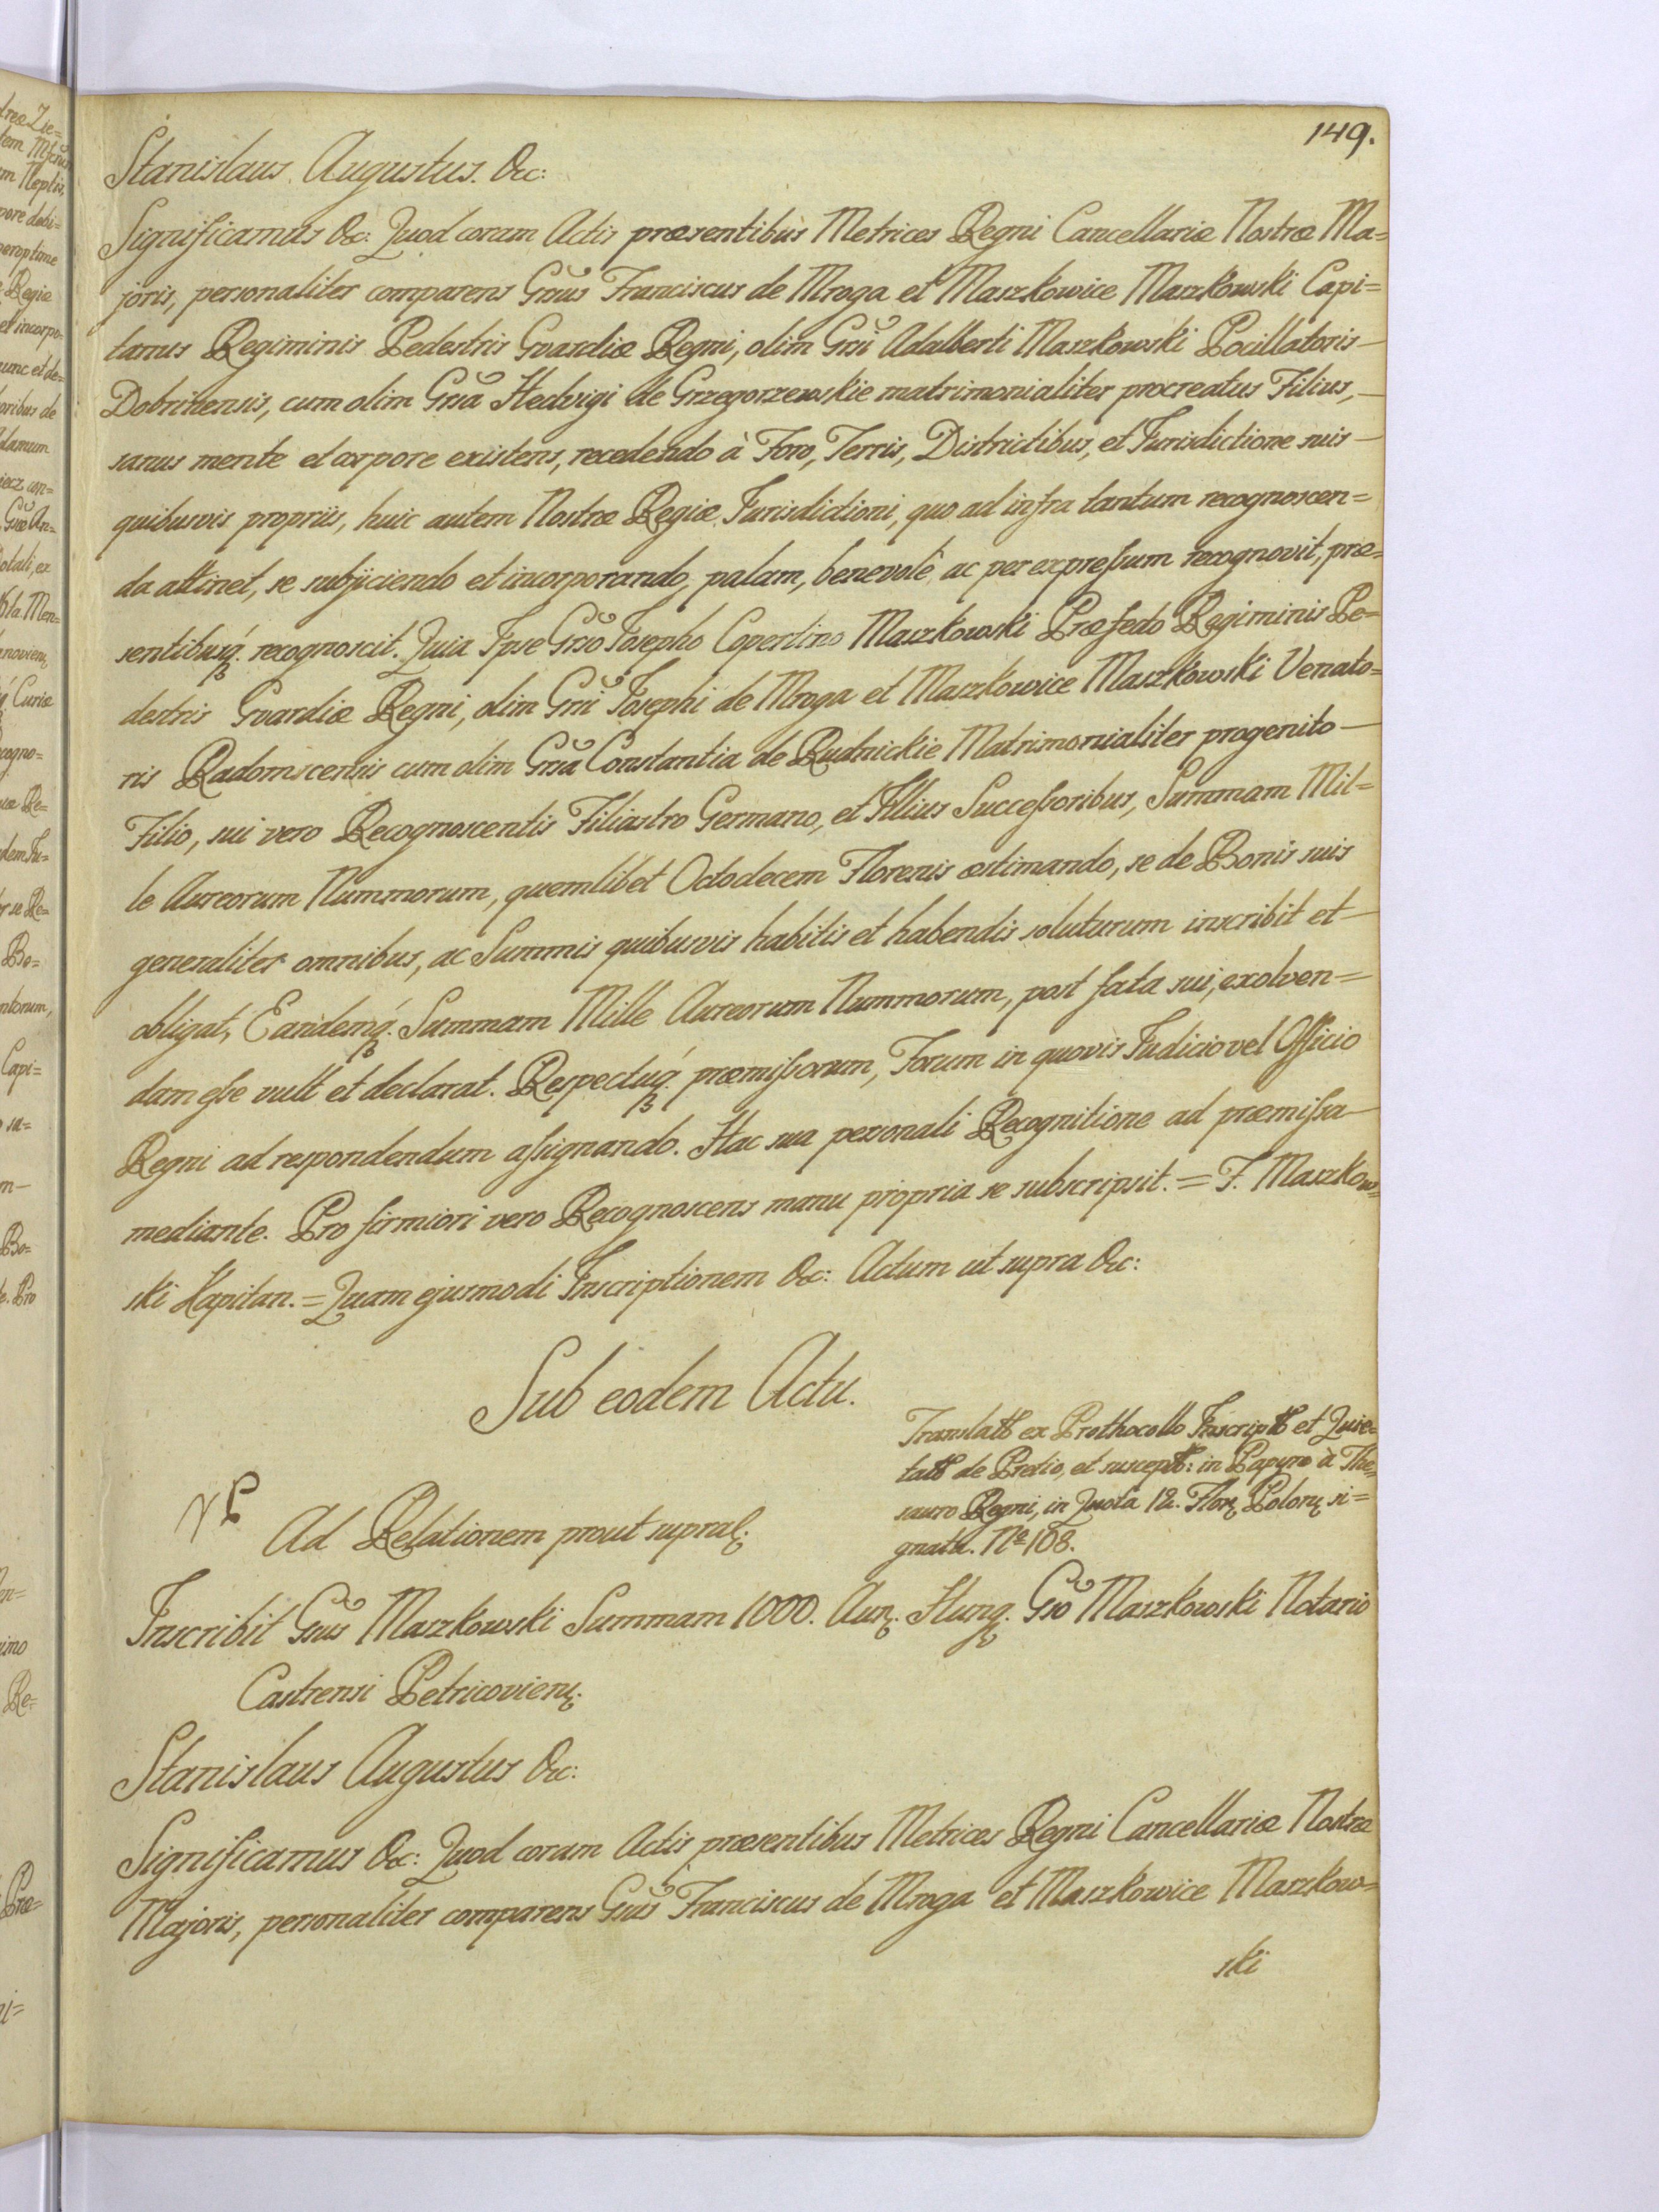 149.
Stanislaus Augustus. &c:
Significamus &c: Quod coram Actis præsentibus Metrices Regni Cancellariæ Nostræ Ma=
joris, personaliter comparens Gnsus Franciscus de Mroga et Maszkowice Maszkowski Capi=
taneus Regiminis Pedestris Gvardiæ Regni, olim Gnsi Adalberti Maszkowski Pocillatoris
Dobrinensis, cum olim Gnsa Hedvigi de Grzegorzewskie matrimonialiter procreatus Filius,
sanus mente et corpore existens, recedendo à Foro, Terris, Districtibus, et Jurisdictione suis
quibusvis propriis, huic autem Nostræ Regiæ Jurisdictioni, quo ad infra tantum recognoscen=
da attinet, se subjiciendo et incorporando, palam, benevolè, ac per expressum recognovit, præ=
sentibusq́. recognoscit. Quia Ipse Gnso Josepho Copertino Maszkowski Præfecto Regiminis Pe=
destris Gvardiæ Regni, olim Gnsi Josephi de Mroga et Maszkowice Maszkowski Venato=
ris Radomscensis cum olim Gnsa Constantia de Rudnickie Matrimonialiter progenito
Filio, sui vero Recognoscentis Filiastro Germano, et Illius Successoribus, Summam Mil=
le Aureorum Nummorum, quemlibet Octodecem Florenis æstimando, se de Bonis suis
generaliter omnibus, ac Summis quibusvis habitis et habendis soluturum inscribit et
obligat, Eandemq́. Summam Mille Aureorum Nummorum, post fata sui, exolven=
dam esse vult et declarat. Respectuq́. præmissorum, Forum in quovis Judicio vel Officio
Regni ad respondendum assignando. Hac sua personali Recognitione ad præmissa
mediante. Pro firmiori vero Recognoscens manu propria se subscripsit. = F. Maszkow=
ski Kapitan. = Quam ejusmodi Inscriptionem &c: Actum ut supra &c:
Sub eodem Actu.
Translatt ex Prothocollo Inscriptt et Quie=
tatt de Pretio, et susceptt: in Papyro à The=
sauro Regni, in Quota 12. Flor: Polor: si=
gnata. Nº 108.
Ad Relationem prout supra.
Inscribit Gsus Maszkowski Summam 1000. Aur: Hung: Gso Maszkowski Notario
Castrensi Petricovien:
Stanislaus Augustus &c:
Significamus &c: Quod coram Actis præsentibus Metrices Regni Cancellariæ Nostræ
Majoris, personaliter comparens Gsus Franciscus de Mroga et Maszkowice Maszkow=
ski